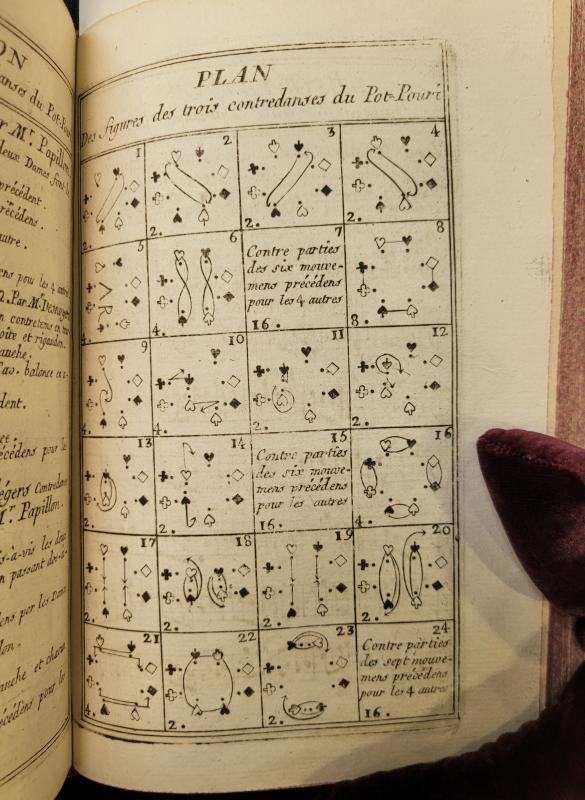 ON
anses du Pot-Pou
ar Mr. Papillon.
deux Dames font la
précédent.
précédens.
autre.
ens pour les 4 autres
2. Par M. Desnoyers
n contretems en tour
oite et rigaudon.
auche.
Cav. balance en a-
dent.
et
récédens pour les
légers Contredanse
Mr. Papillon.
is-à-vis les deux
n passant dos-à-
dens por les
llon.
auche et chacun
récédens pour les
PLAN
Des figures des trois contredanses du Pot-Pouri
1
2.
2
2.
3
2.
4
2.
5
4.
6
4.
7
Contre parties
des six mouve-
mens précédens
pour les 4 autres
16.
8
8.
9
4.
10
4.
11
2.
12
2.
13
2.
14
2.
15
Contre parties
des six mouve-
mens précédens
pour les autres
16.
16
4.
17
2.
18
2.
19
2.
20
2.
21
4.
22
2.
23
2.
24
Contre parties
des sept mouve-
mens précédens
pour les 4 autres
16.